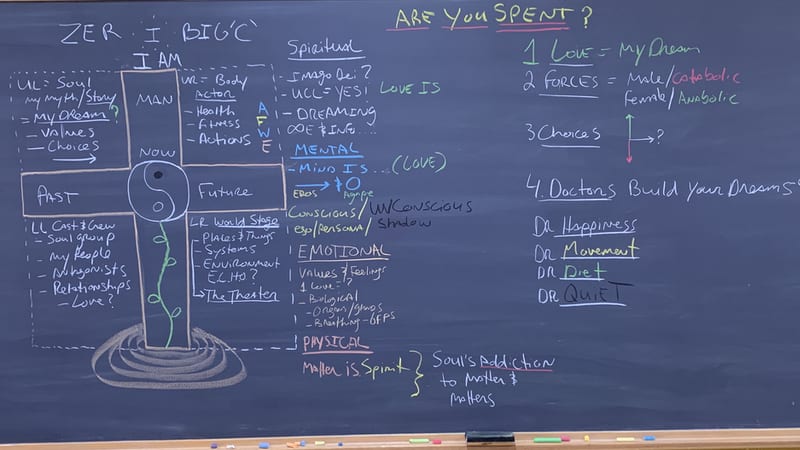 ARE YOU SPENT?
ZER. I BIG'C'
I AM
UL = Soul
my myth/Story
= My Dream?
- Values
- Choices
MAN
UR = Body
ACTOR
- Health
- Fitness
- Actions
A
F
W
E
NOW
PAST
Future
LL Cast & Crew
- Soul group
- My People
- Antagonists
- Relationships
- Love?
LR World Stage
- Places & Things
- Systems
- Environment
E.L.H.O?
The Theater
Spiritual
- Imago Dei?
- UCL = YES!
LOVE IS
- DREAMING
MENTAL
- Mind Is...(LOVE)
EROS
Agape
CONSCIOUS/UN/CONSCIOUS
ego/persona/Shadow
EMOTIONAL
Values & Feelings
1 Love = ?
- Biological
- Organs/glands
- Breathing
PHYSICAL
Matter is Spirit
Soul's Addiction
to Matter &
Matters
1 LOVE = My Dream
2 FORCES = Male/Catabolic
Female/Anabolic
3 Choices
?
4. Doctors Build Your Dreams
DR Happiness
DR Movement
DR Diet
DR QUIET